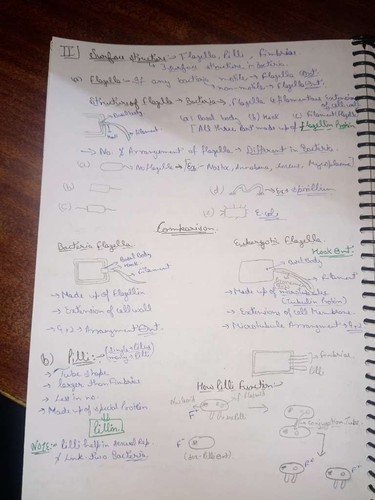 II) Surface structure:- Flagella, Pilli, Fimbriae.
3 surface structure in bacteria.
(a) Flagella:- If any bacteria motile → Flagella
non-motile → Flagella
Structure of Flagella → Bacteria → Flagella is filamentous extension of cell wall
Basal body
Hook
Filament
(a) Basal body (b) Hook (c) Filament
[All three are made up of Flagellin Protein
→ No. & Arrangement of Flagella → Different in Bacteria.
(a) No Flagella →
(b)
(c)
(d) Ex → Spirillum
(e) E.coli
Comparison.
Bacteria Flagella
Basal Body
Hook
Filament
→ Made up of Flagellin
→ Extension of cell wall
→ 9+2 → Arrangement
Eukaryotic Flagella.
Hook
Basal Body
Filament
→ Made up of microtubules
(Tubulin Protein)
→ Extensions of cell Membrane.
→ Microtubule Arrangement → 9+2
b) Pilli:-
→ Tube shape
→ larger than fimbriae
→ Less in no.
→ Made up of special Protein
Pillin
NOTE:- Pilli help in sexual Rep.
& Link two Bacteria.
Fimbriae
Pilli
How Pilli Function:-
F+
F-
Conjugation Tube.
F+
F+